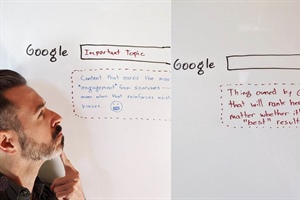 Google
Important Topic
Content that earns the mo
"engagement" from searches —
even when that reinforces
biases.
Google
Thing owned by G
that will rank he
matter whether it'
"best" result